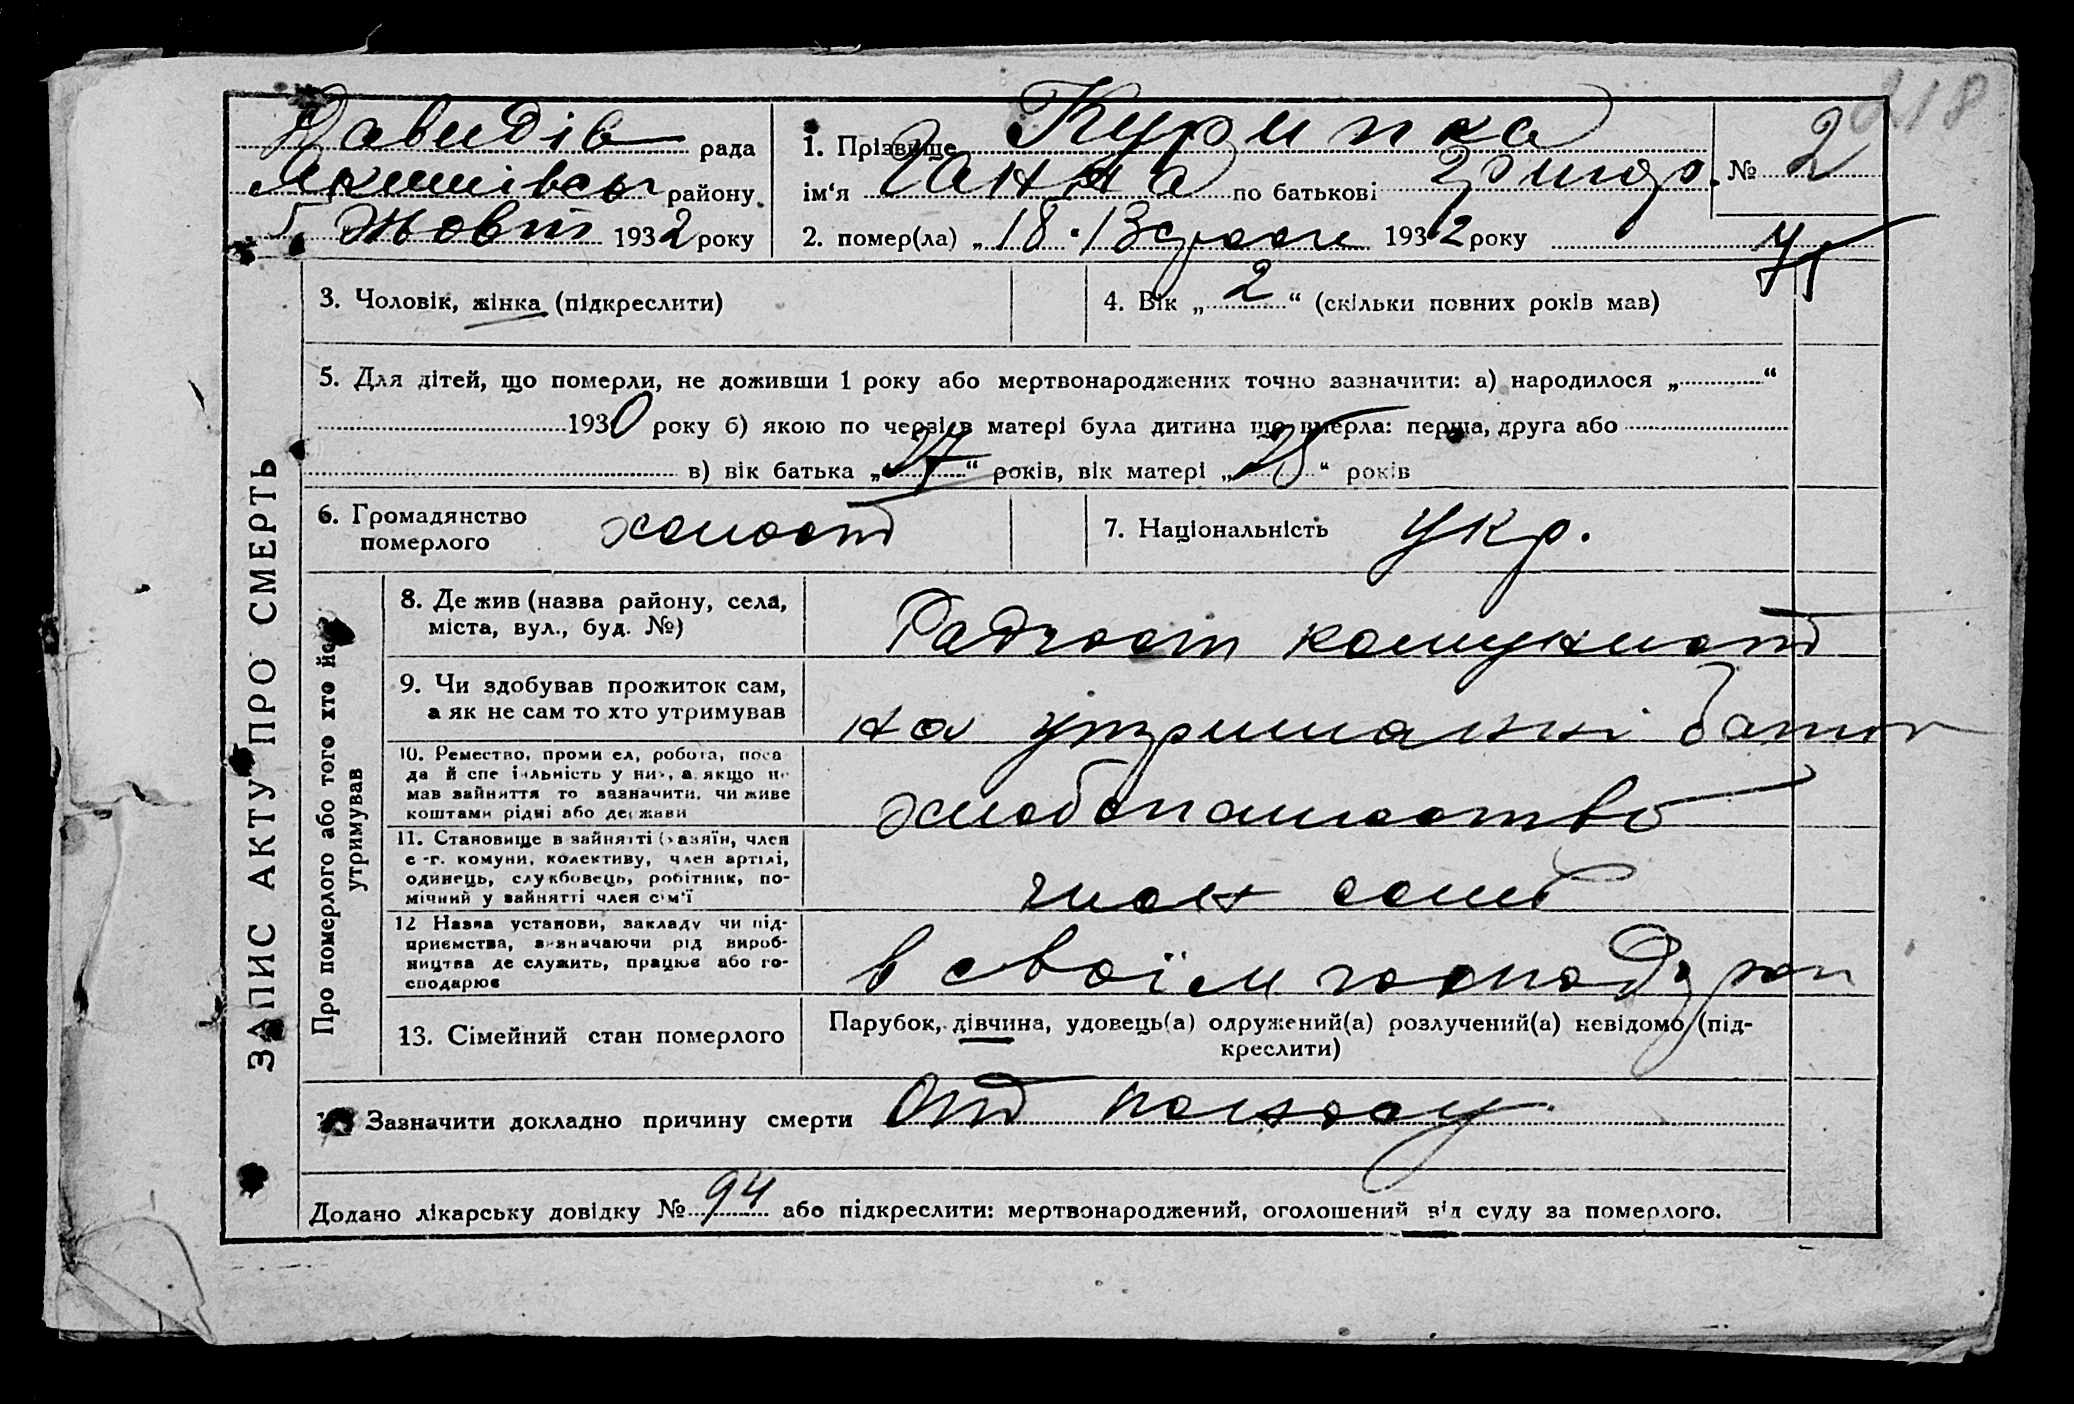 218
Давидів рада
Якимівськ району
5 Жовт 1932 року
1. Прізвище Курипка № 2
ім'я Ганна по батькові Григор.
2. помер(ла) „ 18 . 1932 року
75
ЗАПИС АКТУ ПРО СМЕРТЬ
3. Чоловік, жінка (підкреслити) 4. Вік „ 2 “ (скільки повних років мав)
5. Для дітей, що померли, не доживши 1 року або мертвонароджених точно зазначити: а) народилося „ “
1930 року б) якою по черзі в матері була дитина що вмерла: перша, друга або
в) вік батька „ 27 “ років, вік матері „ 25 “ років
6. Громадянство
померлого 7. Національність укр.
Про померлого або того хто йо
утримував
8. Де жив (назва району, села,
міста, вул., буд. №)
9. Чи здобував прожиток сам,
а як не сам то хто утримував
на утриманні батьк
10. Ремество, проми ел, робота, поса
да й спе іяльність у ни, а якщо не
мав зайняття то зазначити, чи живе
коштами рідні або держави
хлебопашество
11. Становище в зайнятті (хазяїн, член
с-г. комуни, колективу, член артілі,
одинець, службовець, робітник, по-
мічний у зайнятті член сім'ї
член семї
12 Назва установи, закладу чи під-
приємства, визначаючи рід вироб-
ництва де служить, працює або го-
сподарює
в своїм господарсті
13. Сімейний стан померлого Парубок, дівчина, удовець(а) одружений(а) розлучений(а) невідомо (під-
креслити)
Зазначити докладно причину смерти От поносу
Додано лікарську довідку № 94 або підкреслити: мертвонароджений, оголошений від суду за померлого.